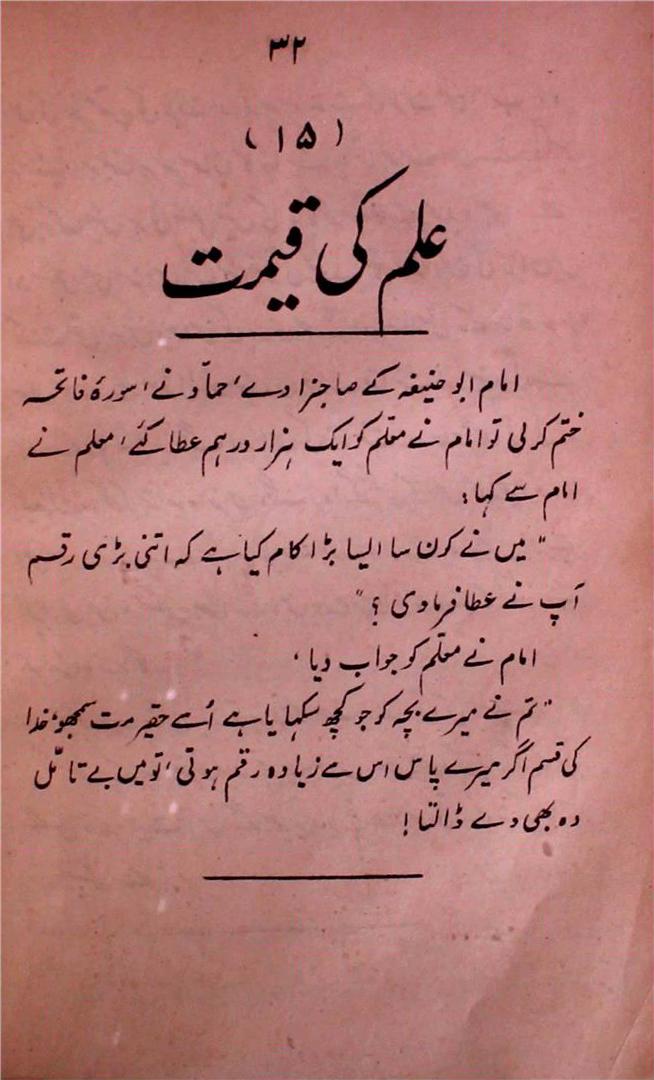 ۳۲
(۱۵)
علم کی قیمت
امام ابو حنیفہ کے صاجزادے، حمّاد نے، سورۂ فاتحہ
ختم کر لی تو امام نے معلّم کو ایک ہزار درہم عطا کئے، معلم نے
امام سے کہا:
"میں نے کون سا ایسا بڑا کام کیا ہے کہ اتنی بڑی رقم
آپ نے عطا فرمادی؟"
امام نے معلّم کو جواب دیا،
"تم نے میرے بچہ کو جو کچھ سکھایا ہے اُسے حقیر مت سمجھو، خدا
کی قسم اگر میرے پاس اس سے زیادہ رقم ہوتی، تو میں بے تامّل
وہ بھی دے ڈالتا!